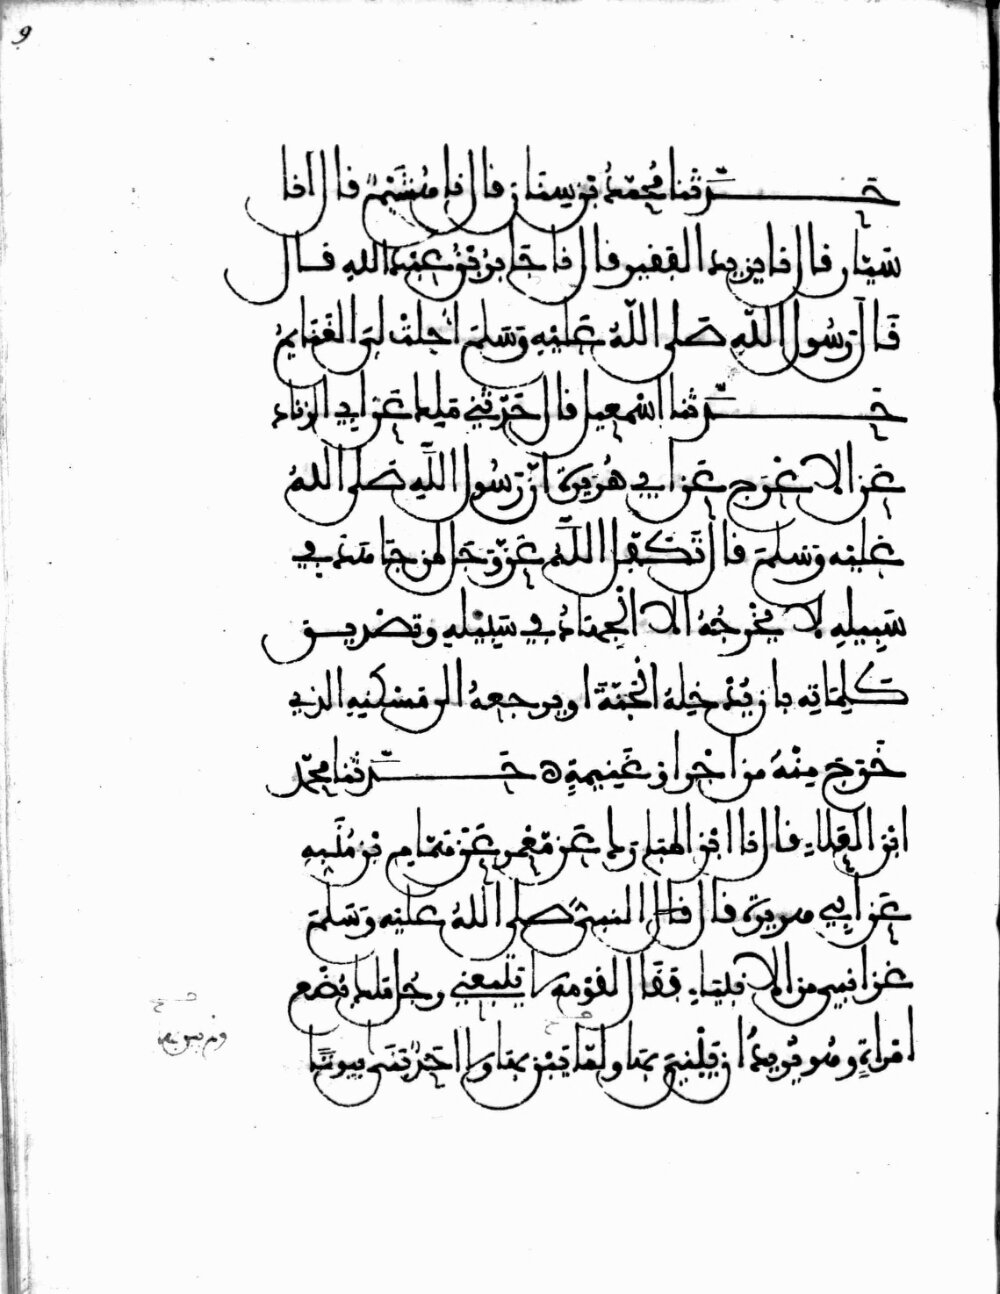 حَـدّثنا مُحمّدُ بْن سِنَان قال نا هُشَيْمٌ قال انا
سَيّار قال نا يزيد الفقير قال نا جَابرُ بْنُ عَبْدِ اللهِ قال
قَال رَسُول اللّهِ صَلى اللّهُ عَليْهِ وَسَلمَ أُحِلتْ لِيَ الغَنَايمُ
حَـدّثنا اسْمعيل قال حَدّثني مَلِك عَن ابي الزناد
عَن الاعْرَج عَن ابي هُرَيرَةَ انّ رَسُول اللّهِ صَلى اللهُ
عَليْه وَسَلمَ قال تَكَفّل اللّهُ عَزّ وَجَل لمن جَاهَدَ في
سَبِيلهِ لا يخْرجُهُ الا الْجهَادُ في سَبِيْلهِ وتصْديق
كلِمَاتِه بان يُدْخِلهُ الْجَنّةَ او يرجعهُ الى مَسْكنِهِ الذي
خَرَجَ مِنْهُ من اجْر او غَنِيمةٍ ه حَـدّثنا محمّد
ابْن العَلاءِ قال نا ابْن المبَارك عَن مَعْمر عَنْ هَمّام بْن مُنَبهٍ
عَن ابِي هريرة قال قال النبىّ صلى اللهُ عليْه وَسَلمَ
غزا نبي من الانبياءِ فقَال لقوْمه لا يَتْبَعْني رجُل مَلك بُضْع
امْراةٍ وهُو يُريدُ ان يَبْني بهَا ولمّا يَبْن بهَا ولا احَدٌ بَنَى بيوتًا